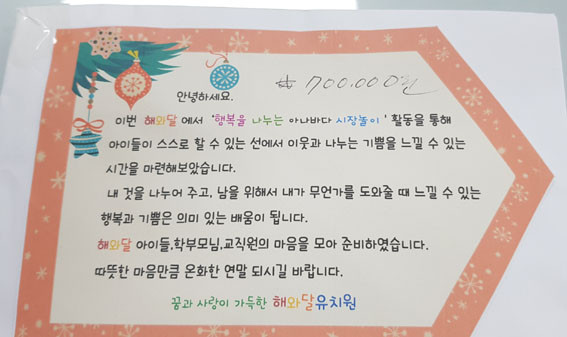 ₩ 700.000원
안녕하세요.
이번 해와달 에서 '행복을 나누는 아나바다 시장놀이' 활동을 통해
아이들이 스스로 할 수 있는 선에서 이웃과 나누는 기쁨을 느낄 수 있는
시간을 마련해보았습니다.
내 것을 나누어 주고, 남을 위해서 내가 무언가를 도와줄 때 느낄 수 있는
행복과 기쁨은 의미 있는 배움이 됩니다.
해와달 아이들,학부모님,교직원의 마음을 모아 준비하였습니다.
따뜻한 마음만큼 온화한 연말 되시길 바랍니다.
꿈과 사랑이 가득한 해와달유치원